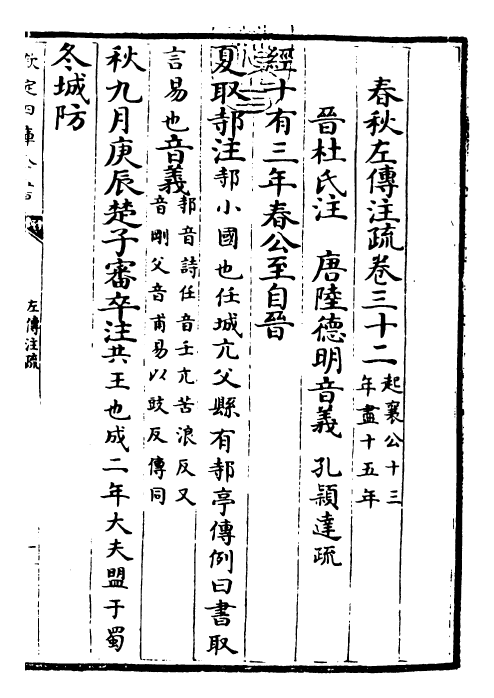 春秋左傳注疏卷三十二 起襄公十三
年盡十五年
晉杜氏注 唐陸德明音義 孔穎達疏
經十有三年春公至自晉
夏取邿注邿小國也任城亢父縣有邿亭傳例曰書取
言易也音義 邿音詩任音壬亢苦浪反又
音剛父音甫易以豉反傳同
秋九月庚辰楚子審卒注共王也成二年大夫盟于蜀
冬城防
欽定四庫全書
左傳注疏
一